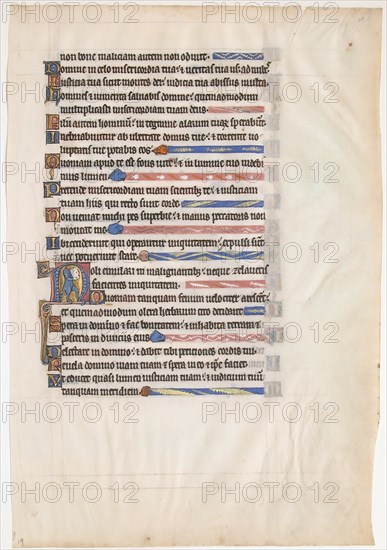 non bone maliciam autem non odivit.
Domine in celo misericordia tua: & veritas tua usq; ad nubes.
Iusticia tua sicut montes dei: iudicia tua abissus multa.
Homines & iumenta salvabis domine: quemadmodum
multiplicasti misericordiam tuam deus.
Filii autem hominum: in tegmine alarum tuarum sperabunt.
Inebriabuntur ab ubertate domus tue: & torrente vo
luptatis tue potabis eos.
Quoniam apud te est fons vite: & in lumine tuo videbi
mus lumen.
Pretende misericordiam tuam scientibus te: & iusticiam
tuam hiis qui recto sunt corde.
Non veniat michi pes superbie: & manus peccatoris non
moveat me.
Ibi ceciderunt qui operantur iniquitatem: expulsi sunt
nec potuerunt stare.
Noli emulari in malignantibus: neque zelaveris
facientes iniquitatem.
Quoniam tanquam fenum velociter arescent:
et quemadmodum olera herbarum cito decident.
Spera in domino & fac bonitatem: & inhabita terram &
pasceris in diviciis eius.
Delectare in domino: & dabit tibi peticiones cordis tui.
Revela domino viam tuam & spera in eo & ipse faciet.
Et educet quasi lumen iusticiam tuam: & iudicium tuum
tanquam meridiem.
PHOTO 12